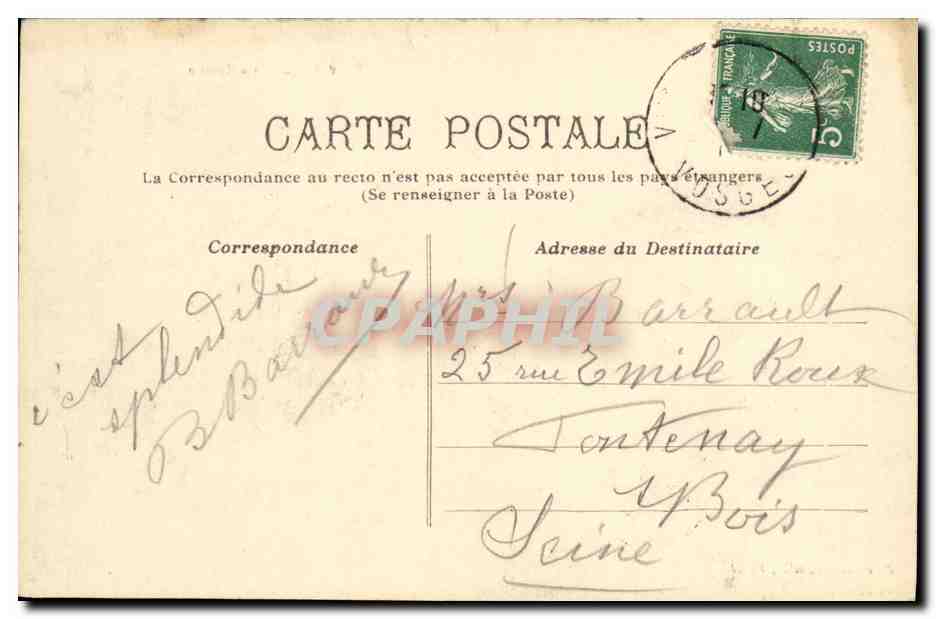 CARTE POSTALE
La Correspondance au recto n'est pas acceptée par tous les pays étrangers
(Se renseigner à la Poste)
POSTES
FRANÇAISE
5c
18
VOSGES
Correspondance
c'est
splendide
B Barrault
Adresse du Destinataire
Mrs Barrault
25 rue Emile Roux
Fontenay
s/Bois
Seine
CPAPHIL